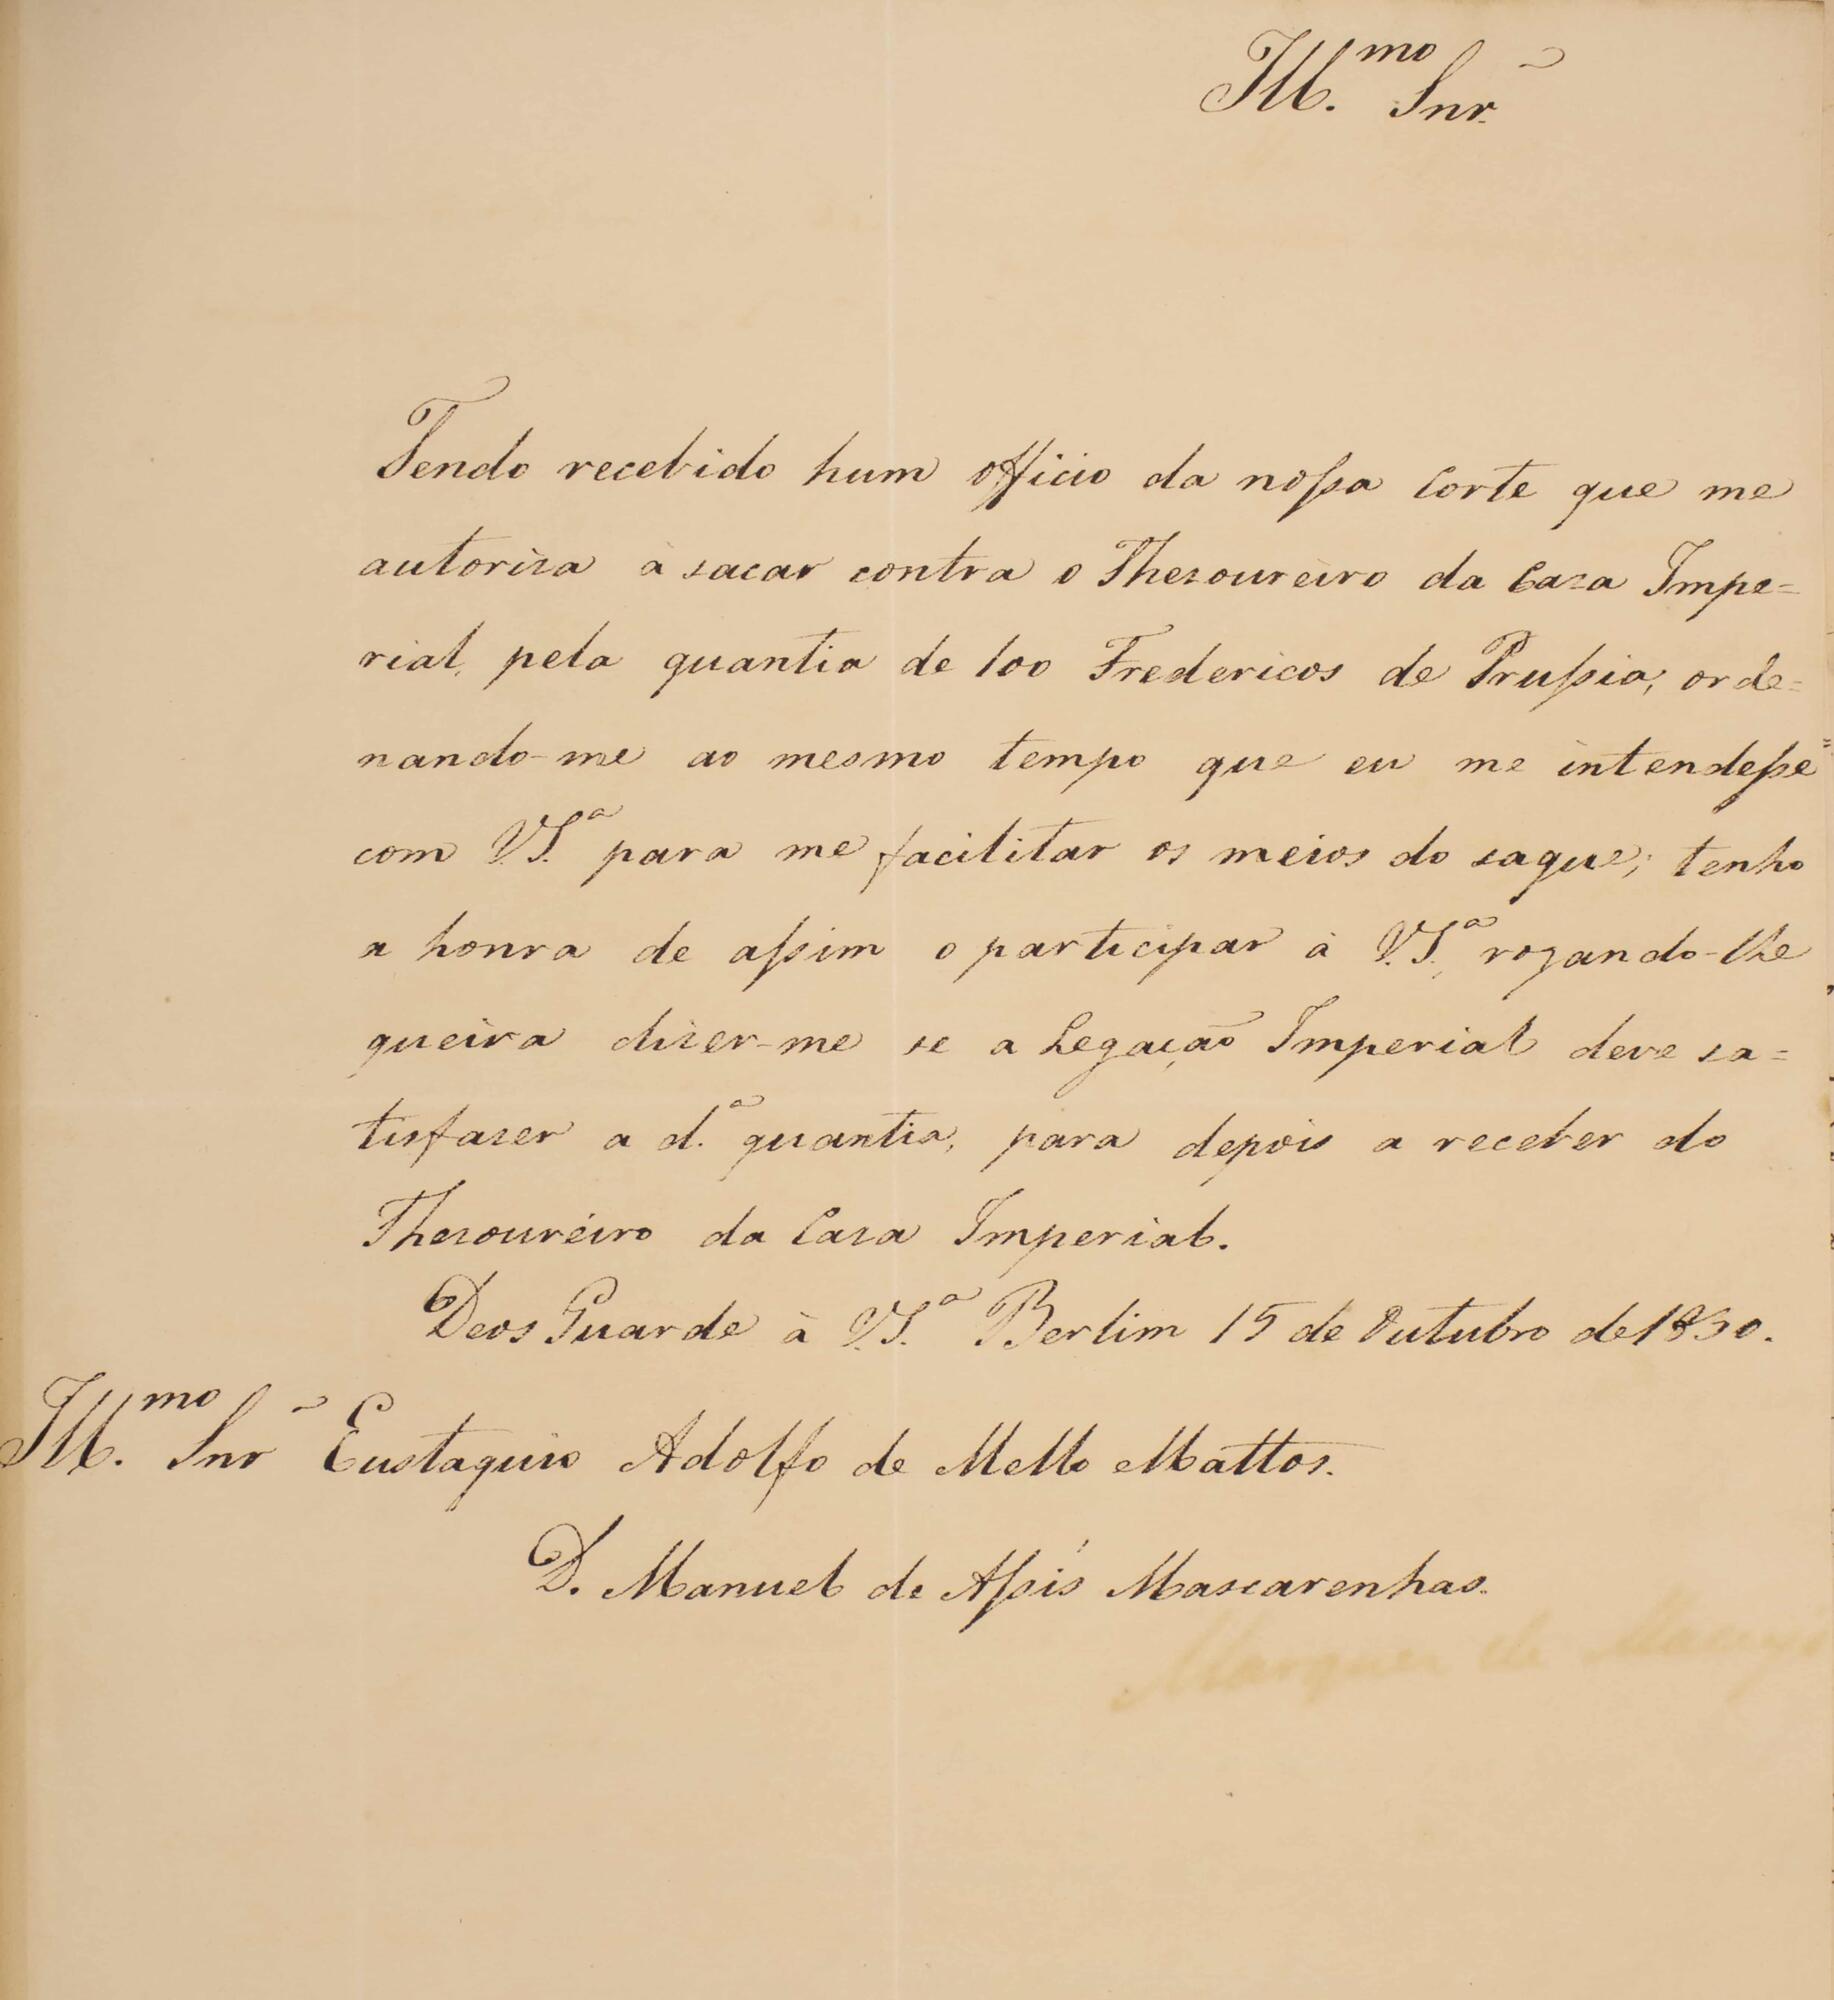 Ill.mo Snr.
Tendo recebido hum officio da nossa Corte que me
autoriza à sacar contra o Thezoureiro da Caza Impe=
rial, pela quantia de 100 Fredericos de Prussia, orde=
nando-me ao mesmo tempo que eu me intendesse
com V.S.ª para me facilitar os meios do saque; tenho
a honra de assim o participar à V.S.ª, rogando-lhe
queira dizer-me se a Legação Imperial deve sa=
tisfazer a d.ª quantia, para depois a receber do
Thezoureiro da Caza Imperial.
Deos Guarde à V.S.ª Berlim 15 de Outubro de 1830.
Ill.mo Snr Eustaquio Adolfo de Mello Mattos.
D. Manuel de Assis Mascarenhas.